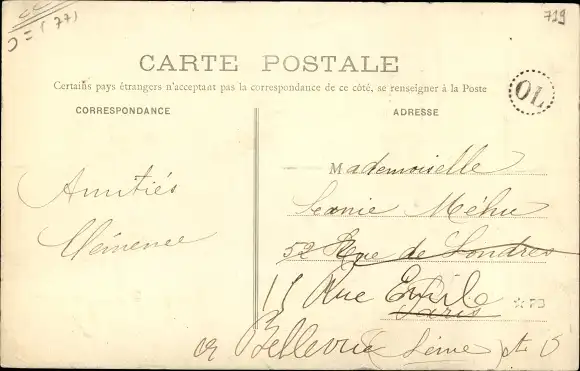 719
(77)
CARTE POSTALE
Certains pays étrangers n'acceptant pas la correspondance de ce côté, se renseigner à la Poste
CORRESPONDANCE
ADRESSE
OL
Amitiés
Clémence
Mademoiselle
Léonie Méhu
52 Rue de Londres
15 Rue Emile
Paris
73
Bellevue Seine et O